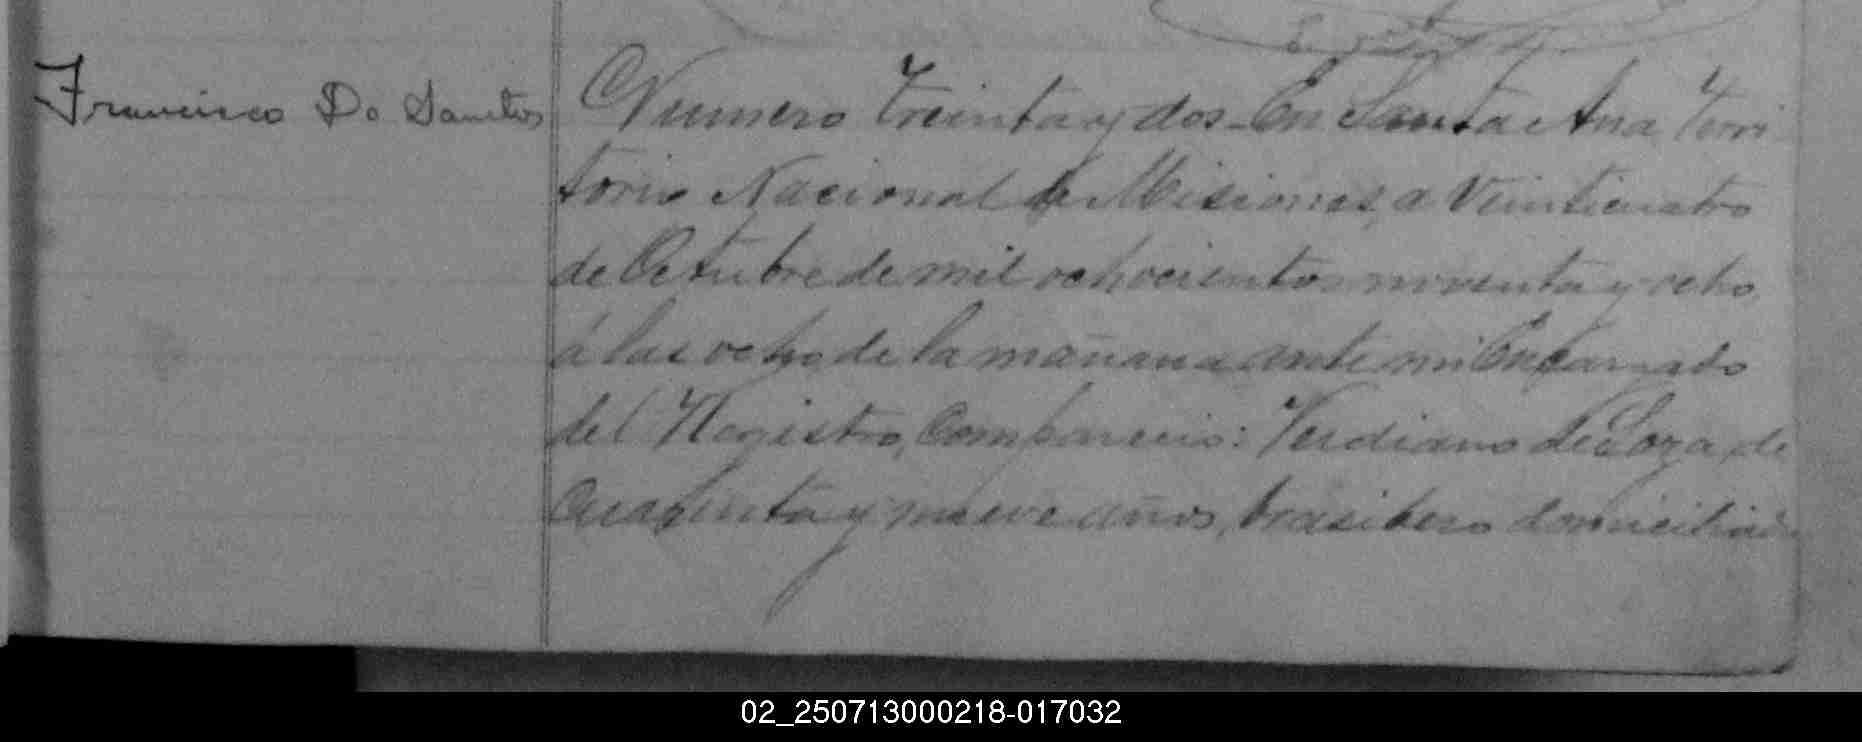 Francisco Do Santos
Numero Treinta y dos - En Santa Ana Terri
torio Nacional de Misiones, a Veinticuatro
de Octubre de mil ochocientos noventa y ocho,
á las ocho de la mañana ante mi Encargado
del Registro, Comparecio: Verdiano de Loza, de
Cuarenta y nueve años, brasilero domiciliado
02_250713000218-017032